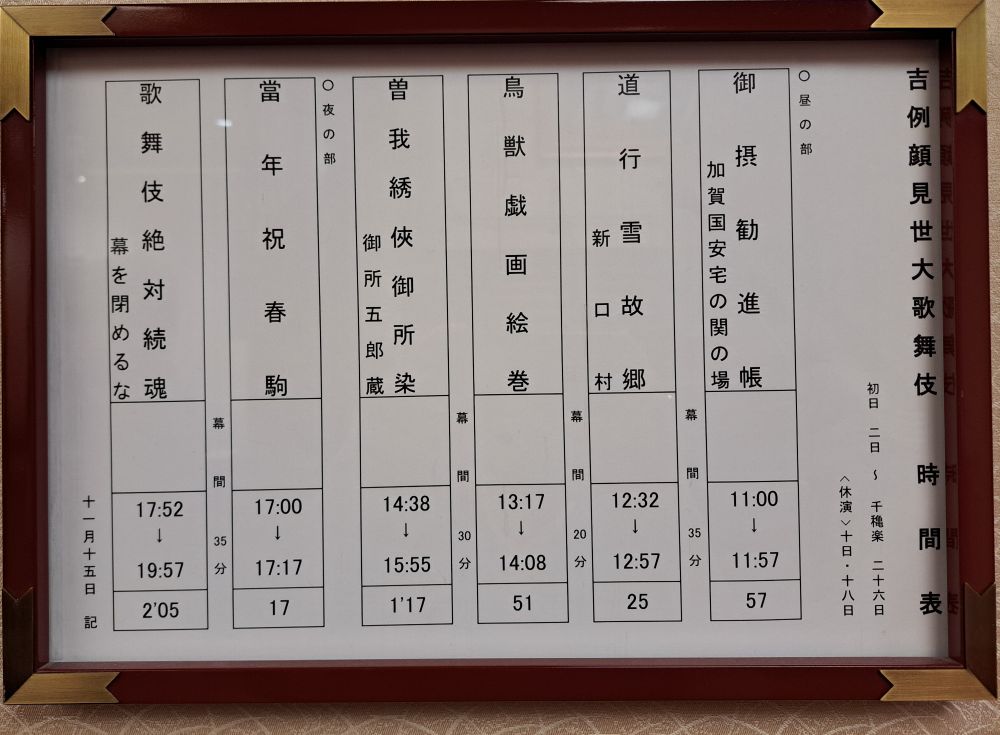 吉例顔見世大歌舞伎 時間表
初日 二日 ~ 千穐楽 二十六日
〈休演〉十日・十八日
○昼の部
御摂勧進帳
加賀国安宅の関の場
11:00
↓
11:57
57
幕間 35分
道行雪故郷
新口村
12:32
↓
12:57
25
幕間 20分
鳥獣戯画絵巻
13:17
↓
14:08
51
幕間 30分
曽我綉俠御所染
御所五郎蔵
14:38
↓
15:55
1'17
○夜の部
當年祝春駒
17:00
↓
17:17
17
幕間 35分
歌舞伎絶対続魂
幕を閉めるな
17:52
↓
19:57
2'05
十一月十五日 記